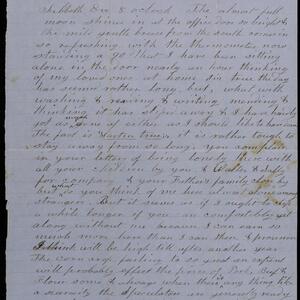 Sabbath Eve 8 o'clock The almost full
moon shines in at the office door so bright &
the mild gentle breeze from the south comes in
so refreshing with the thermometer now
standing at 90 that I have been sitting
alone in the door nearly an hour thinking
of my loved ones at home since time the day
has seemed rather long, but, what with
washing & reading & writing, mending &
thinking it has slipped away & I have hardly
got as much of either as I should like to have done
The fact is Austen Cross it is rather tough to
stay away from so long, You complain
in your letter of being lonely there with
all your children by you &
for company & your Father's family
but what do you think of me here among
strangers. But it seems as if I ought to
a while longer if you can comfortably get
along without me because I can earn so
much more here than I can there & provisions
I think will be high till after another year
The corn crop failing to so great an extent
will probably effect the price of Pork, Beef &
Flour some & always when there is any thing like
a scarcity the speculators in greedy ready